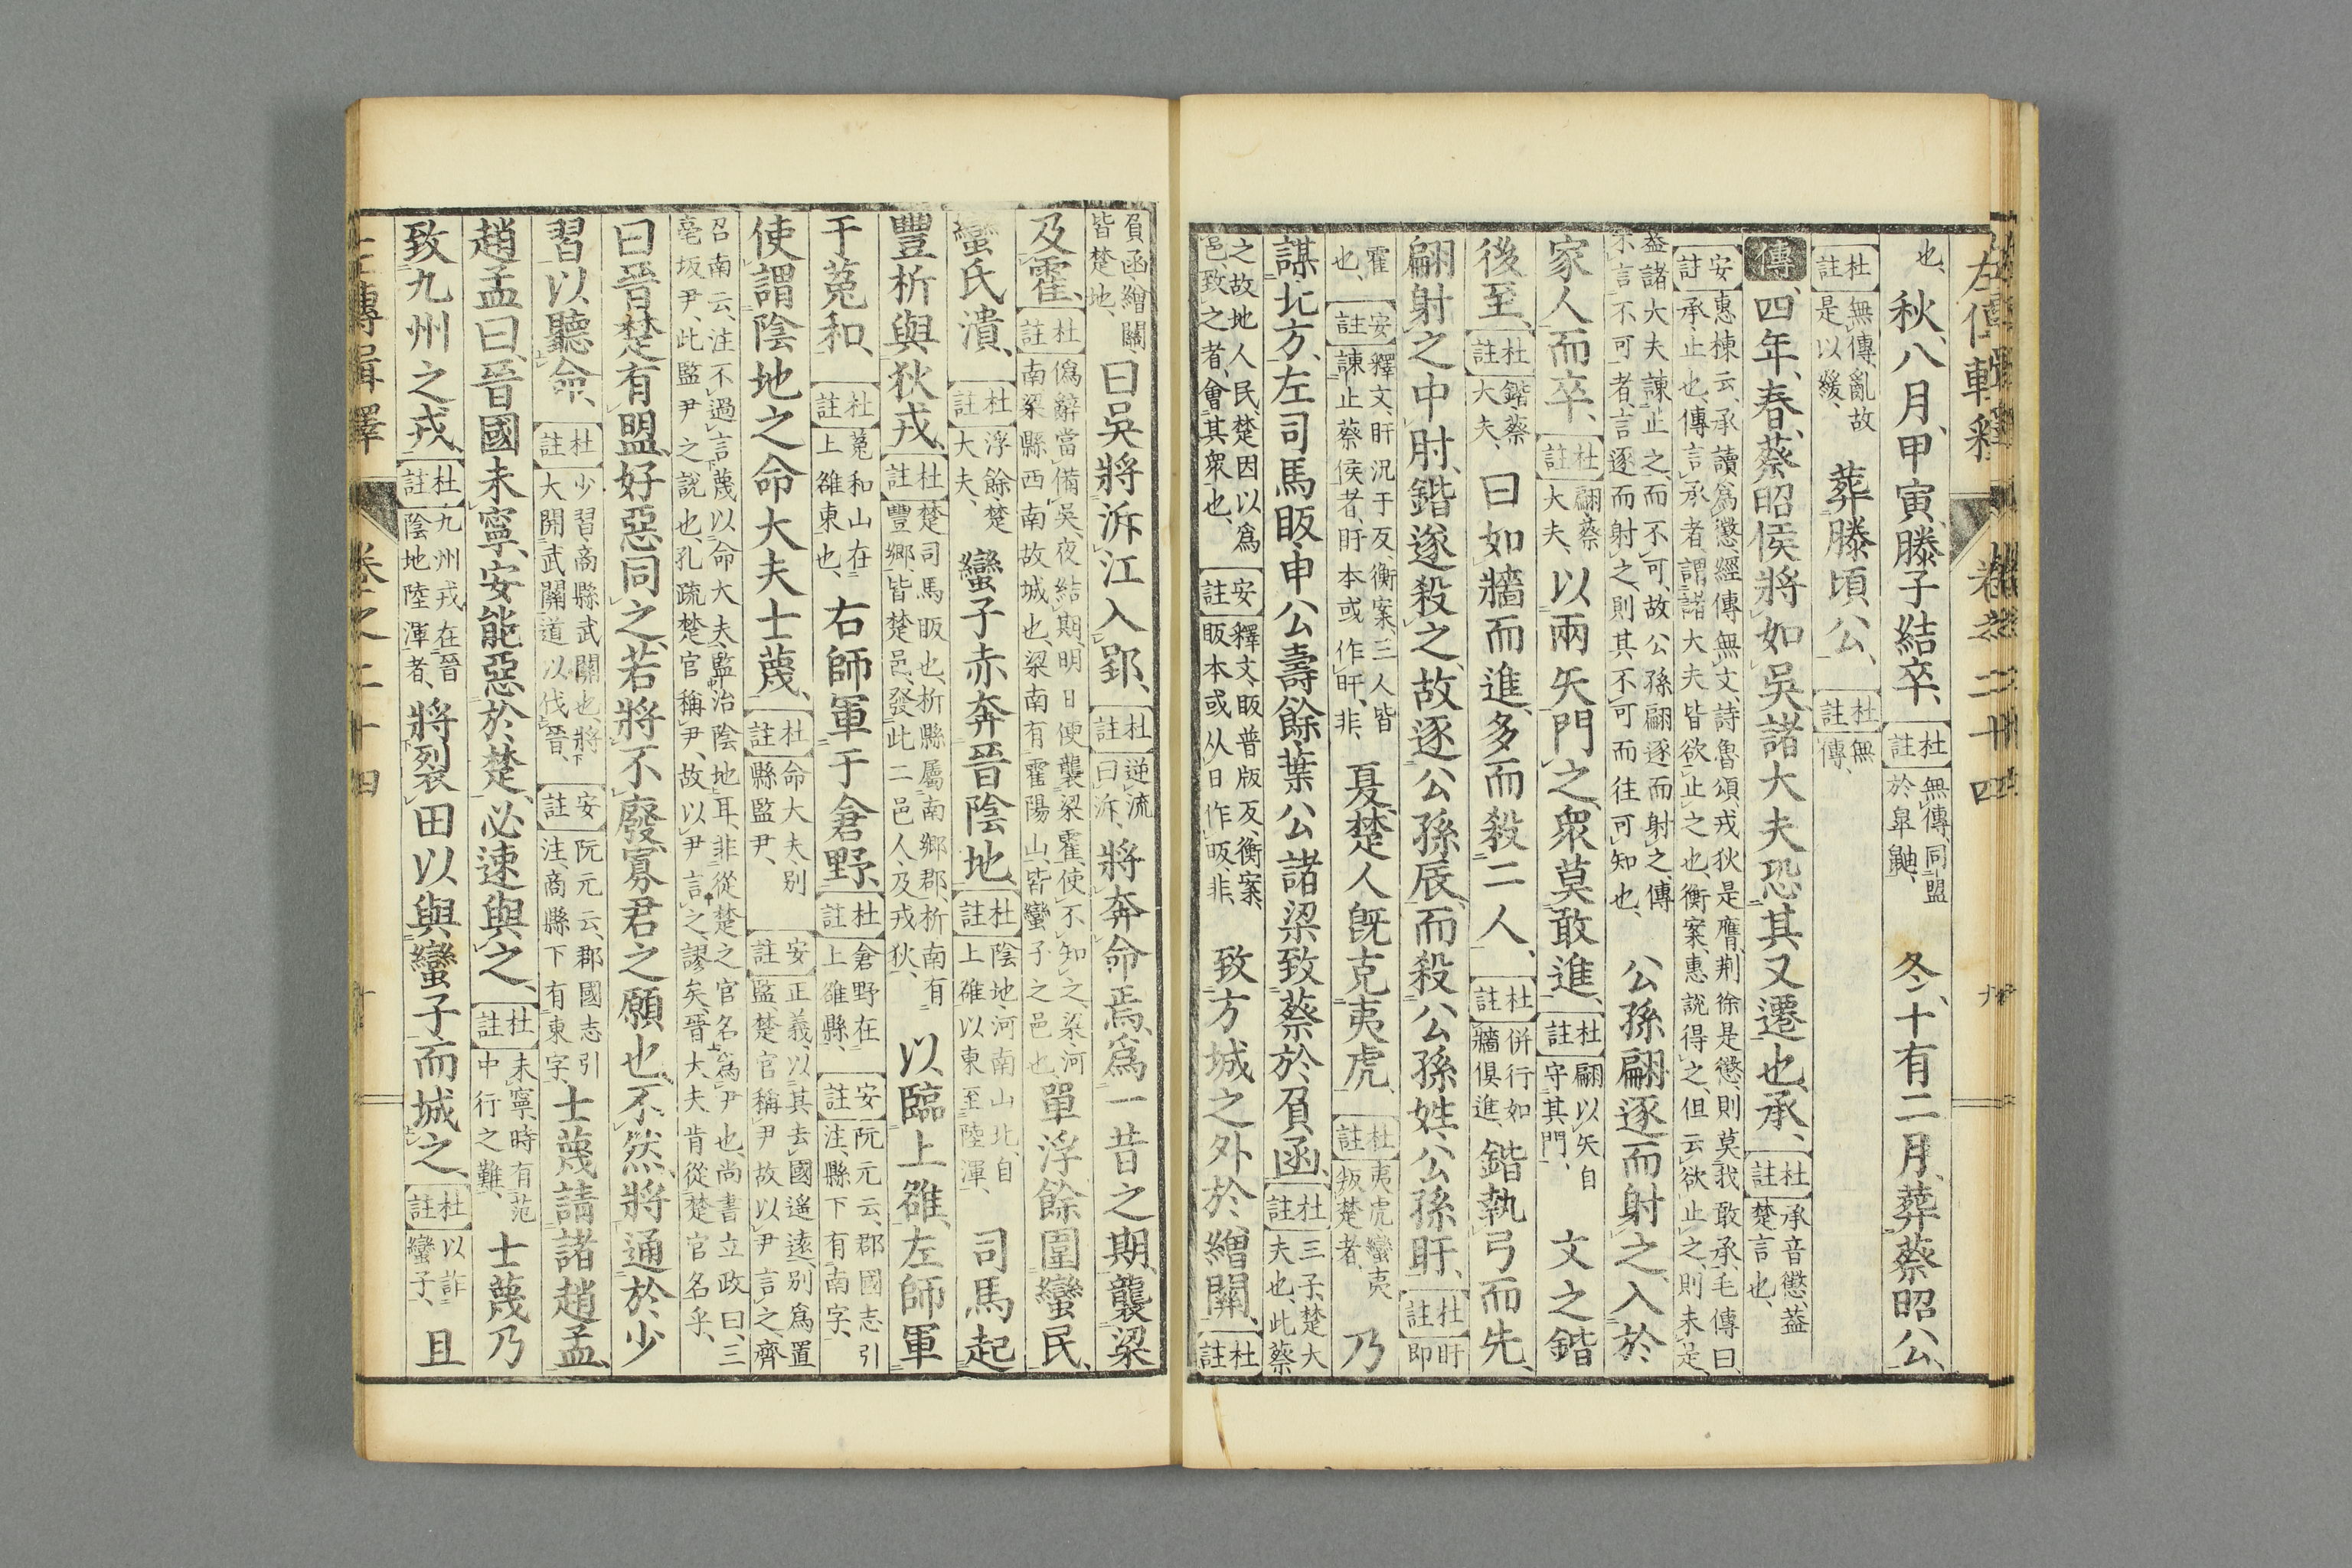 左傳輯釋 卷之二十四 九
也、 秋、八月、甲寅、滕子結卒、 杜註 無傳、同盟於皐鼬、 冬、十有二月、葬蔡昭公、
杜註 無傳、亂故是以緩、 葬滕頃公、 杜註 無傳、
傳 四年、春、蔡昭侯將如吳、諸大夫恐其又遷也、承、 杜註 承音懲、蓋楚言也、
安註 惠棟云、承讀爲懲、經傳無文、詩魯頌、戎狄是膺、荆徐是懲、則莫我敢承、毛傳曰、承、止也、傳言承者、謂諸大夫皆欲止之也、衡案、惠說得之、但云欲止之、則未是、
蓋諸大夫諫止之、而不可、故公孫翩逐而射之、傳不言不可者、言逐而射之、則其不可而往可知也、 公孫翩逐而射之、入於
家人而卒、 杜註 翩、蔡大夫、 以兩矢門之、衆莫敢進、 杜註 翩以矢自守其門、 文之鍇
後至、 杜註 鍇、蔡大夫、 曰、如牆而進、多而殺二人、 杜註 併行如牆俱進、 鍇執弓而先、
翩射之、中肘、鍇遂殺之、故逐公孫辰、而殺公孫姓、公孫盱、 杜註 盱即
霍也、 安註 釋文、盱況于反、衡案、三人皆諫止蔡侯者、盱本或作旰、非、 夏、楚人旣克夷虎、 杜註 夷虎、蠻夷叛楚者、 乃
謀北方、左司馬眅、申公壽餘、葉公諸梁、致蔡於負函、 杜註 三子、楚大夫也、此蔡
之故地人民、楚因以爲邑、致之者、會其衆也、 安註 釋文、眅普版反、衡案、眅本或从日作昄、非、 致方城之外於繒關、 杜註
負函繒關皆楚地、 曰、吳將泝江入郢、 杜註 逆流曰泝、 將奔命焉、爲一昔之期、襲梁
及霍、 杜註 僞辭當備吳、夜結期、明日便襲梁霍、使不知之、梁、河南梁縣西南故城也、梁南有霍陽山、皆蠻子之邑也、 單浮餘圍蠻氏、
蠻氏潰、 杜註 浮餘、楚大夫、 蠻子赤奔晉陰地、 杜註 陰地、河南山北、自上雒以東至陸渾、 司馬起
豐析與狄戎、 杜註 楚司馬眅也、析縣屬南鄕郡、析南有豐鄕、皆楚邑、發此二邑人、及戎狄、 以臨上雒、左師軍
于菟和、 杜註 菟和山在上雒東也、 右師軍于倉野、 杜註 倉野在上雒縣、 安註 阮元云、郡國志引注、縣下有南字、
使謂陰地之命大夫士蔑、 杜註 命大夫、別縣監尹、 安註 正義、以其去國遙遠、別爲置監、楚官稱尹、故以尹言之、齊
召南云、注不過言蔑以命大夫、監治陰地耳、非從楚之官名爲尹也、尚書立政曰、三亳坂尹、此監尹之說也、孔疏楚官稱尹、故以尹言之、謬矣、晉大夫肯從楚官名乎、
曰、晉楚有盟、好惡同之、若將不廢、寡君之願也、不然、將通於少
習以聽命、 杜註 少習、商縣武關也、將大開武關道以伐晉、 安註 阮元云、郡國志引注、商縣下有東字、 士蔑請諸趙孟、
趙孟曰、晉國未寧、安能惡於楚、必速與之、 杜註 未寧、時有范中行之難、 士蔑乃
致九州之戎、 杜註 九州戎在晉陰地陸渾者、 將裂田以與蠻子、而城之、 杜註 以詐蠻子、 且
左傳輯釋 卷之二十四 十